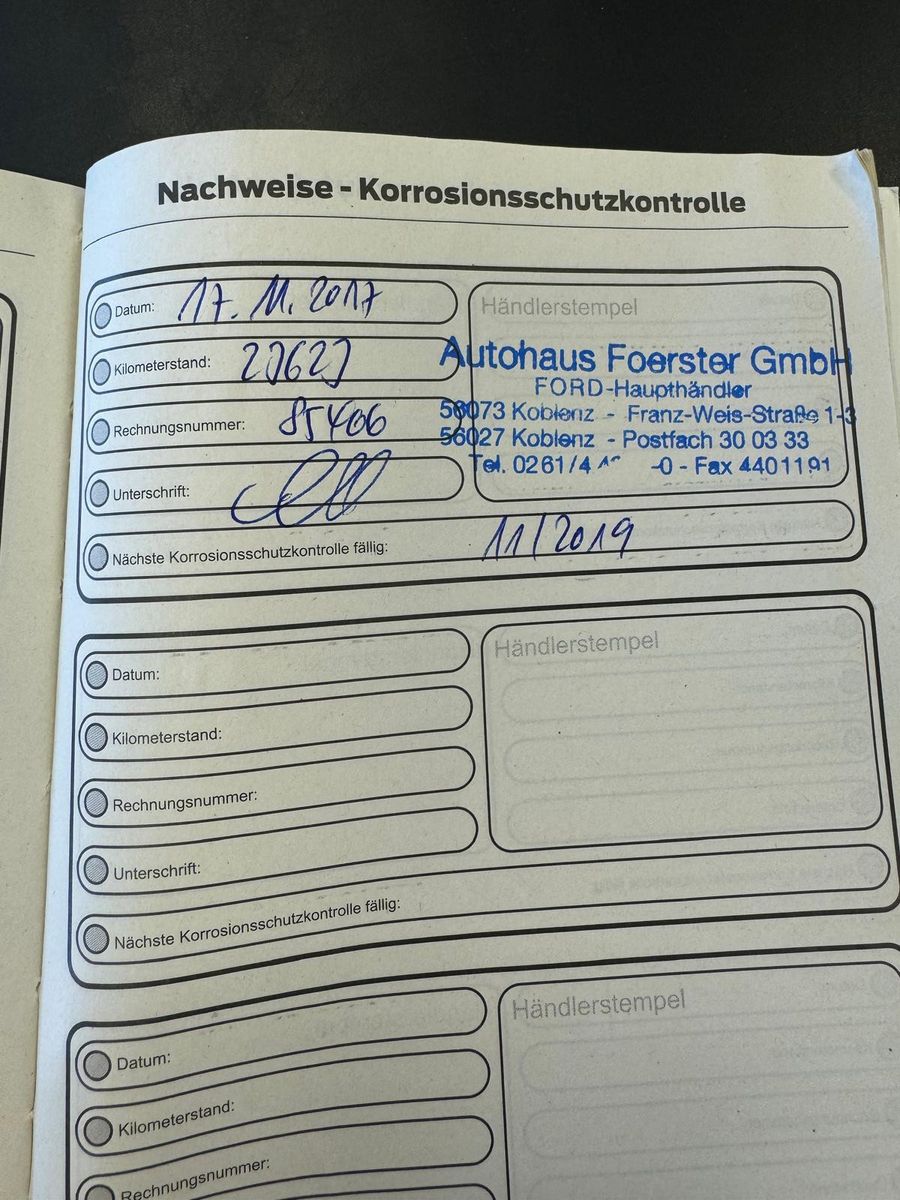 Nachweise - Korrosionsschutzkontrolle
Datum: 17. 11. 2017
Kilometerstand:
Rechnungsnummer: 85406
Unterschrift:
Nächste Korrosionsschutzkontrolle fällig: 11/2019
Händlerstempel
Autohaus Foerster GmbH
FORD-Haupthändler
56073 Koblenz - Franz-Weis-Straße 1-3
56027 Koblenz - Postfach 30 03 33
Tel. 0261/4 -0 - Fax 4401191
Datum:
Kilometerstand:
Rechnungsnummer:
Unterschrift:
Nächste Korrosionsschutzkontrolle fällig:
Händlerstempel
Datum:
Kilometerstand:
Rechnungsnummer:
Händlerstempel